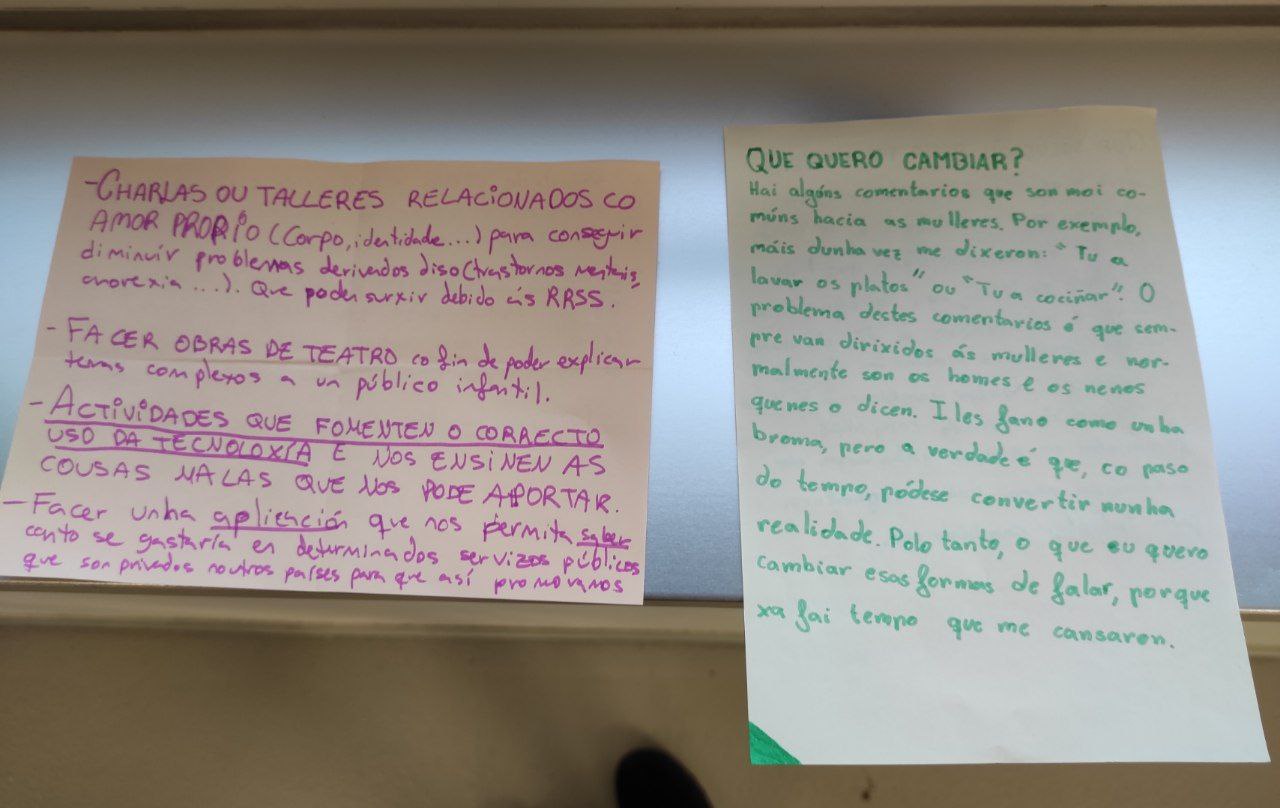 -CHARLAS OU TALLERES RELACIONADOS CO
AMOR PROPIO (Corpo, identidade...) para conseguir
diminuír problemas derivados diso (trastornos mentais,
anorexia ...). Que poden surxir debido ás RRSS.
- FACER OBRAS DE TEATRO co fin de poder explicar
temas complexos a un público infantil.
- ACTIVIDADES QUE FOMENTEN O CORRECTO
USO DA TECNOLOXÍA E NOS ENSINEN AS
COUSAS MALAS QUE NOS PODE APORTAR.
- Facer unha aplicación que nos permita saber
canto se gastaría en determinados servizos públicos
que son privados noutros países para que así promovamos
QUE QUERO CAMBIAR?
Hai algúns comentarios que son moi co-
múns hacia as mulleres. Por exemplo,
máis dunha vez me dixeron: "Tu a
lavar os platos" ou "Tu a cociñar". O
problema destes comentarios é que sem-
pre van dirixidos ás mulleres e nor-
malmente son os homes e os nenos
quenes o dicen. I les fano como unha
broma, pero a verdade é que, co paso
do tempo, pódese convertir nunha
realidade. Polo tanto, o que eu quero
cambiar esas formas de falar, porque
xa fai tempo que me cansaron.